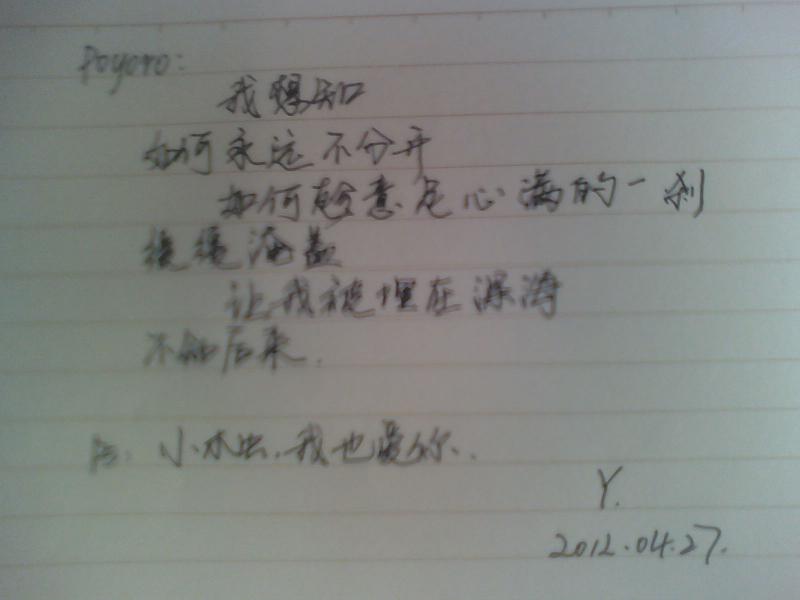 Poyoro:
我想知
如何永远不分开
如何趁意足心满的一刹
缓缓淹盖
让我被埋在深海
不知后来.
PS: 小木虫.我也爱你.
Y.
2012.04.27.